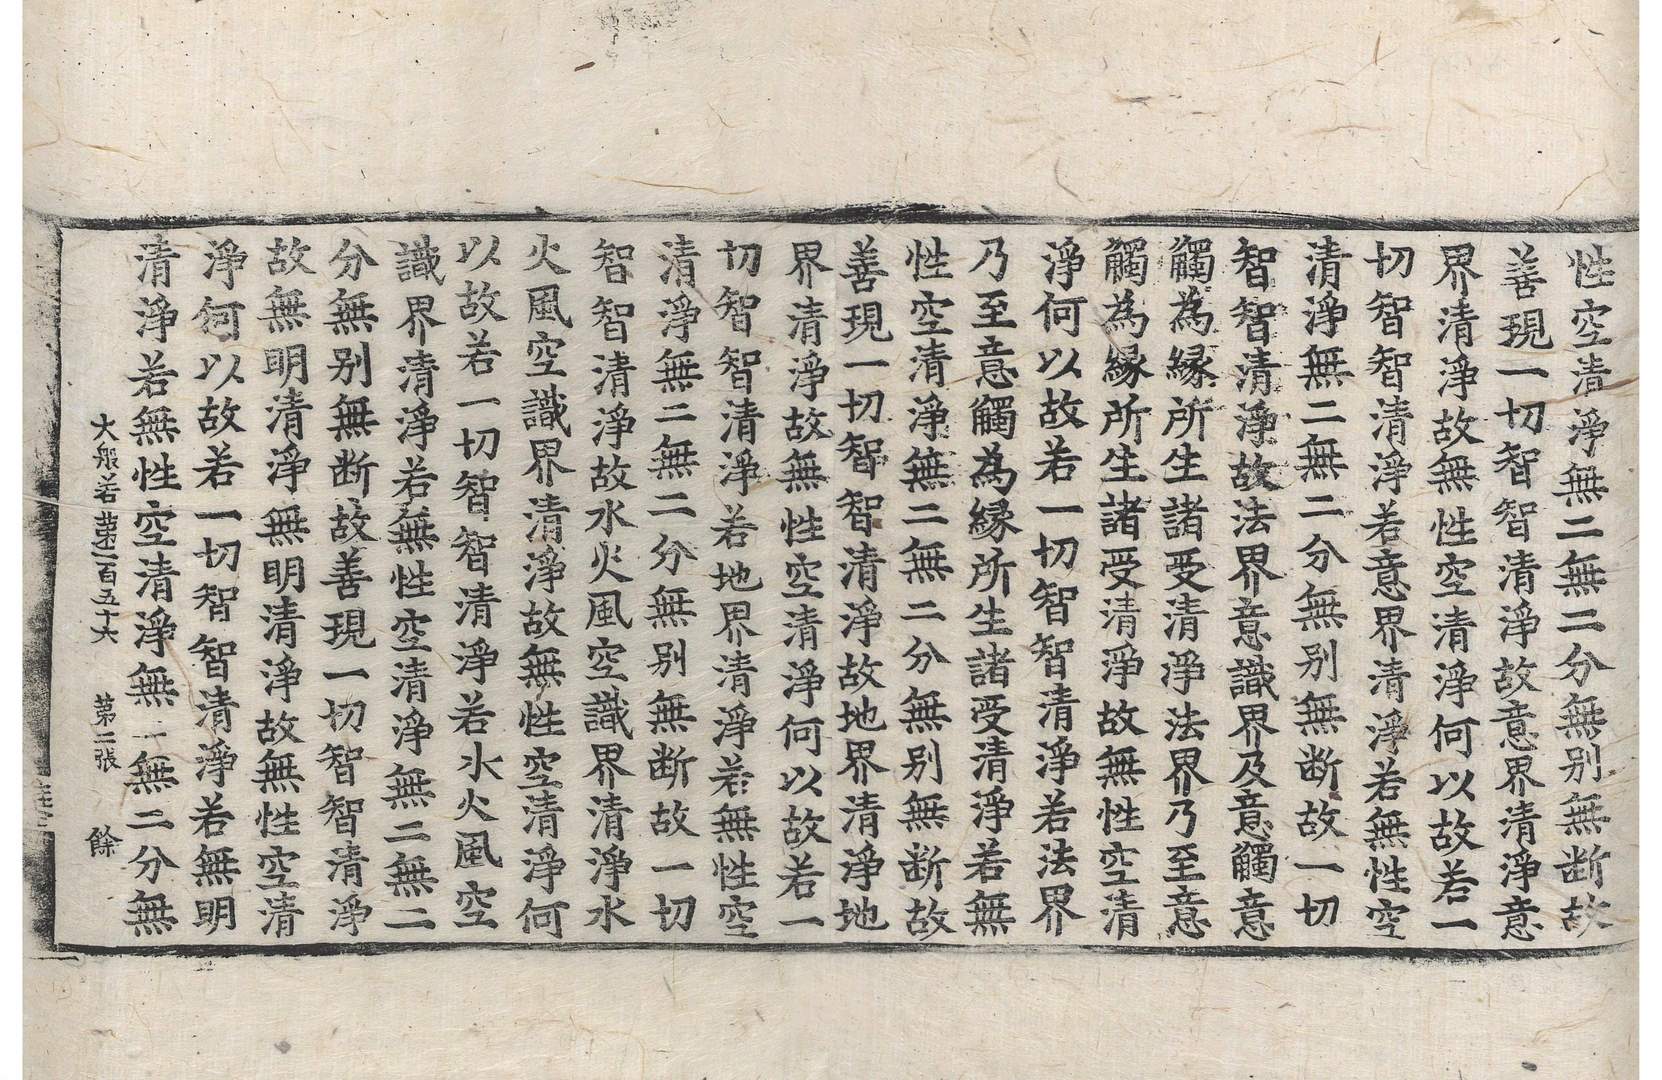 性空清淨無二無二分無別無断故
善現一切智智清淨故意界清淨意
界清淨故無性空清淨何以故若一
切智智清淨若意界清淨若無性空
清淨無二無二分無別無断故一切
智智清淨故法界意識界及意觸意
觸為緣所生諸受清淨法界乃至意
觸為緣所生諸受清淨故無性空清
淨何以故若一切智智清淨若法界
乃至意觸為緣所生諸受清淨若無
性空清淨無二無二分無別無断故
善現一切智智清淨故地界清淨地
界清淨故無性空清淨何以故若一
切智智清淨若地界清淨若無性空
清淨無二無二分無別無断故一切
智智清淨故水火風空識界清淨水
火風空識界清淨故無性空清淨何
以故若一切智智清淨若水火風空
識界清淨若無性空清淨無二無二
分無別無断故善現一切智智清淨
故無明清淨無明清淨故無性空清
淨何以故若一切智智清淨若無明
清淨若無性空清淨無二無二分無
大般若第二百五十六 第二張 餘